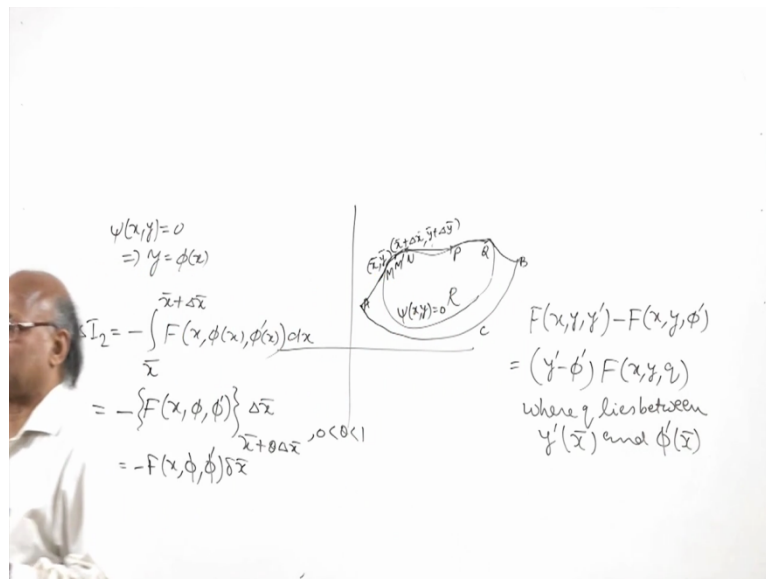 ψ(x,y)=0
⇒ y=φ(x)
x̄+Δx̄
ΔI₂=-∫F(x,φ(x),φ'(x))dx
x̄
= -{F(x,φ,φ')} Δx̄
x̄+θΔx̄ , 0<θ<1
= -F(x,φ,φ')δx̄
(x̄,ȳ) (x̄+Δx̄,ȳ+Δȳ)
M M' N P Q B
A
ψ(x,y)=0 R
C
F(x,y,y')-F(x,y,φ')
= (y'-φ') F(x,y,q)
where q lies between
y'(x̄) and φ'(x̄)